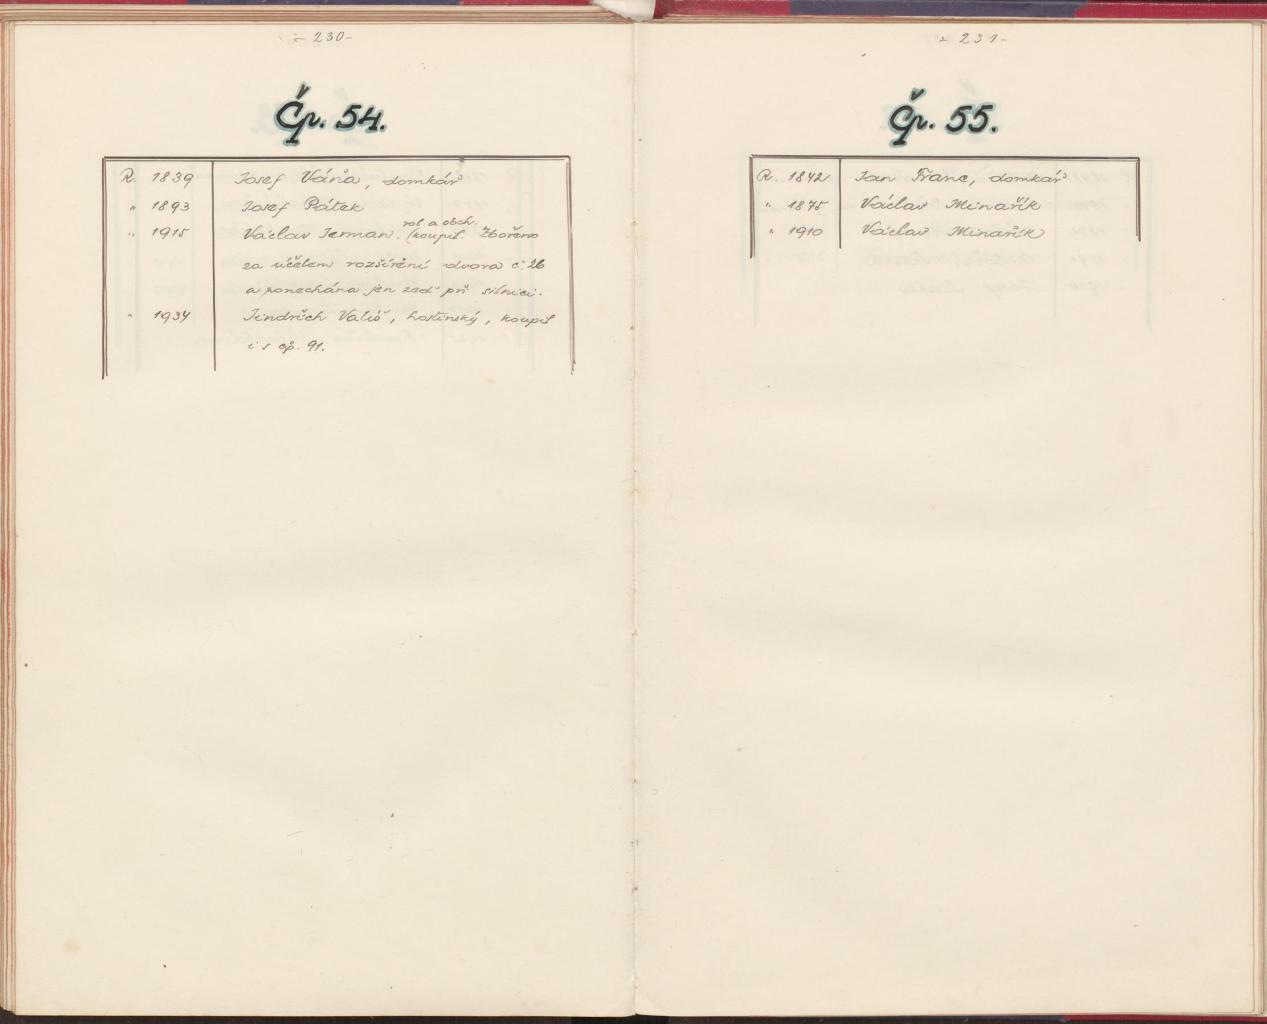 - 230 -
Čp. 54.
R. 1839 Josef Váňa, domkář
" 1893 Josef Pátek
rol. a obch.
" 1915 Václav Jerman. (koupil. Zbořeno
za účelem rozšíření dvora č. 26
a ponechána jen zeď při silnici.
" 1934 Jindřich Vališ, hostinský, koupil
i s čp. 91.
- 231 -
Čp. 55.
R. 1842 Jan Franc, domkář
" 1875 Václav Minařík
" 1910 Václav Minařík